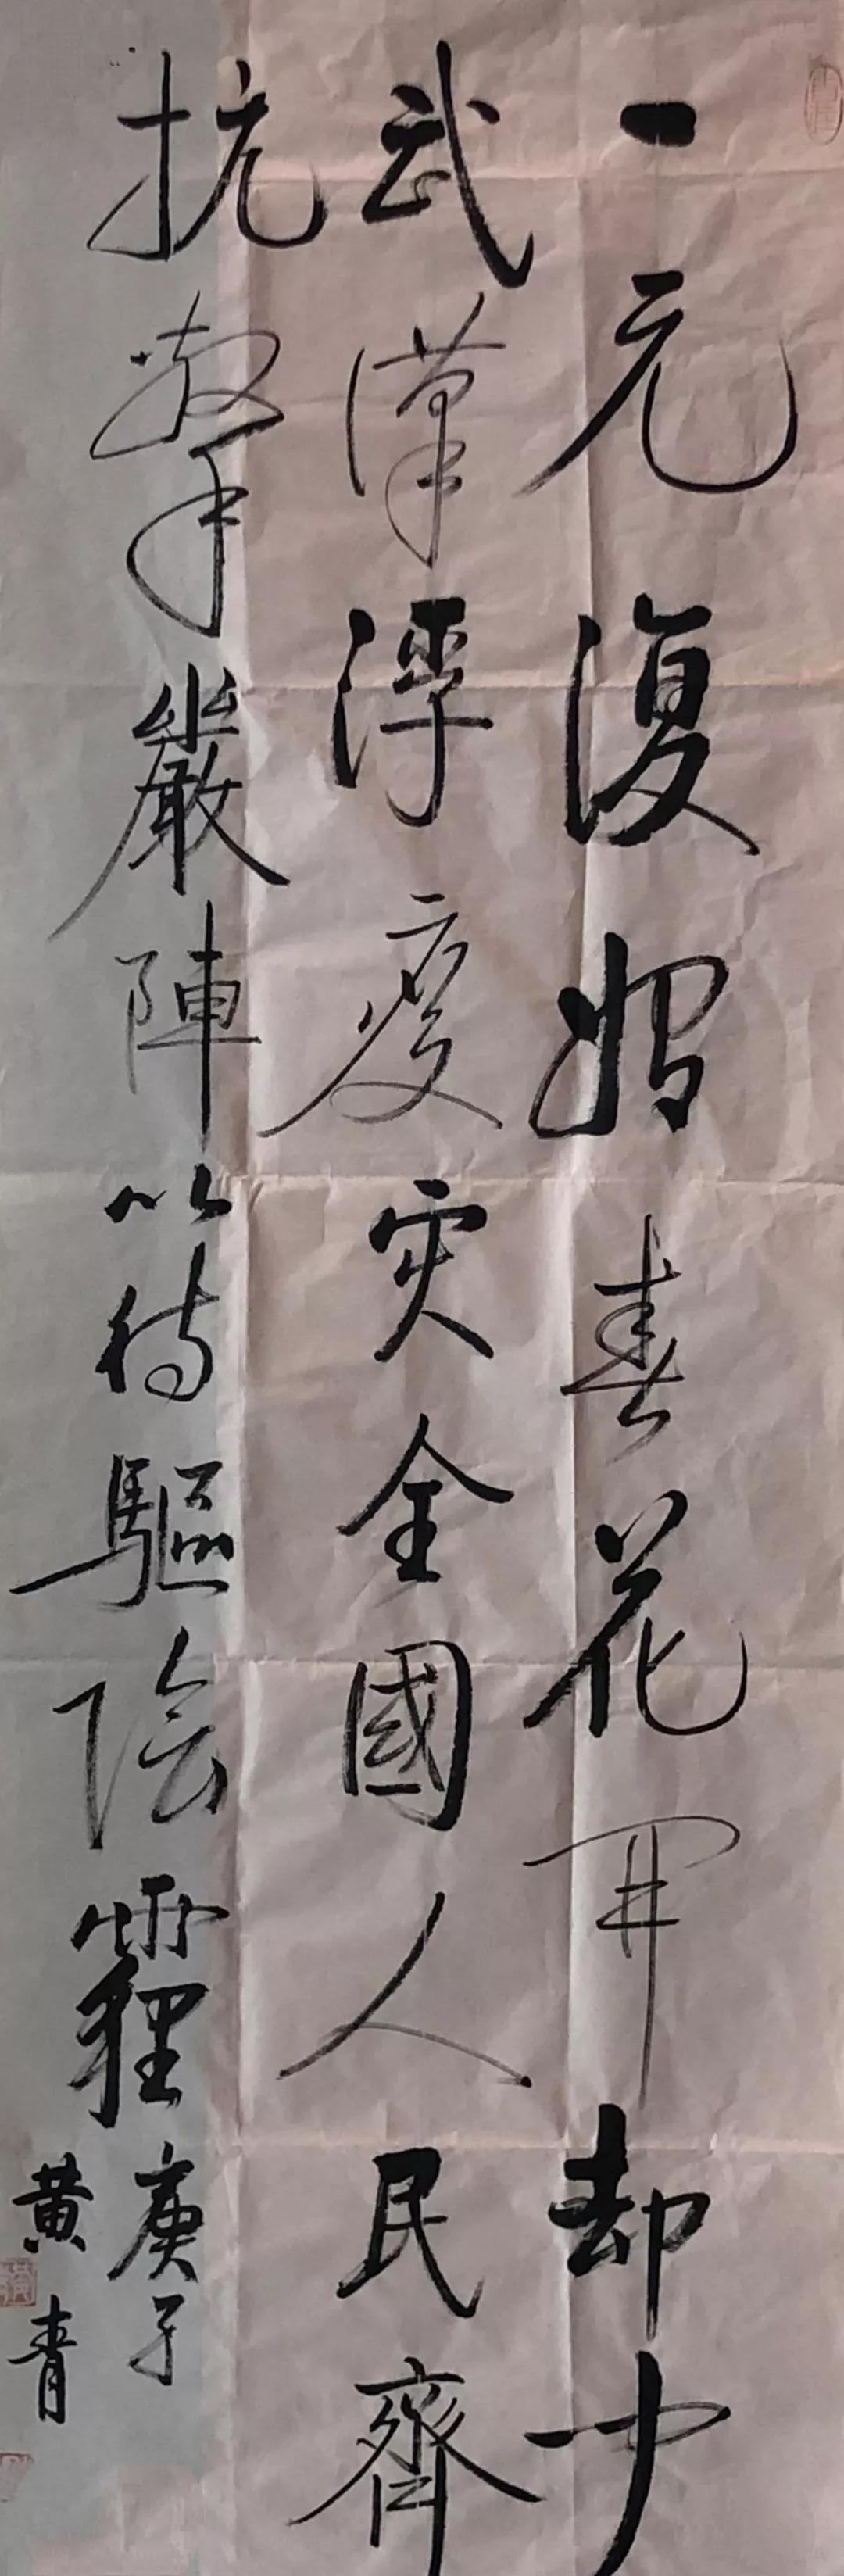 一元復始春花開却少
武漢浮疫灾全國人民齊
抗擊嚴陣以待驅陰霾
庚子
黄青